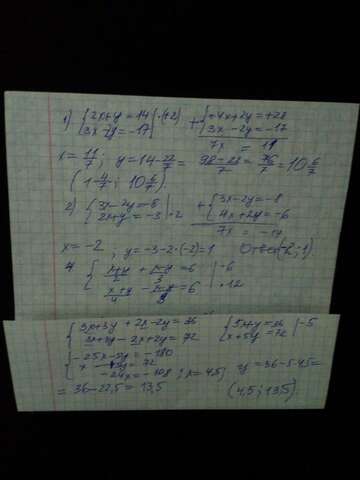 1) { 2x+y=14 | ·(+2)   + { +4x+2y=+28
{ 3x-2y=-17   { 3x-2y=-17
7x = 11
x = 11/7; y = 14 - 22/7 = (98-22)/7 = 76/7 = 10 6/7
(1 4/7; 10 6/7).
2) { 3x-2y=-8   + { 3x-2y=-8
{ 2x+y=-3 | ·2   { 4x+2y=-6
7x = -14
x = -2; y = -3-2·(-2) = 1   Ответ(-2; 1).
4 { (x+y)/2 + (x-y)/3 = 6 | ·6
{ (x+y)/4 - (x-y)/3 = 6 | ·12
{ 3x+3y+2x-2y=36   { 5x+y=36 | -5
{ 3x+3y-2x+2y=72   { x+5y=72
{ -25x-5y=-180
x+5y=72
-24x=-108; x=4,5; y=36-5·4,5=
= 36-22,5=13,5   (4,5; 13,5).